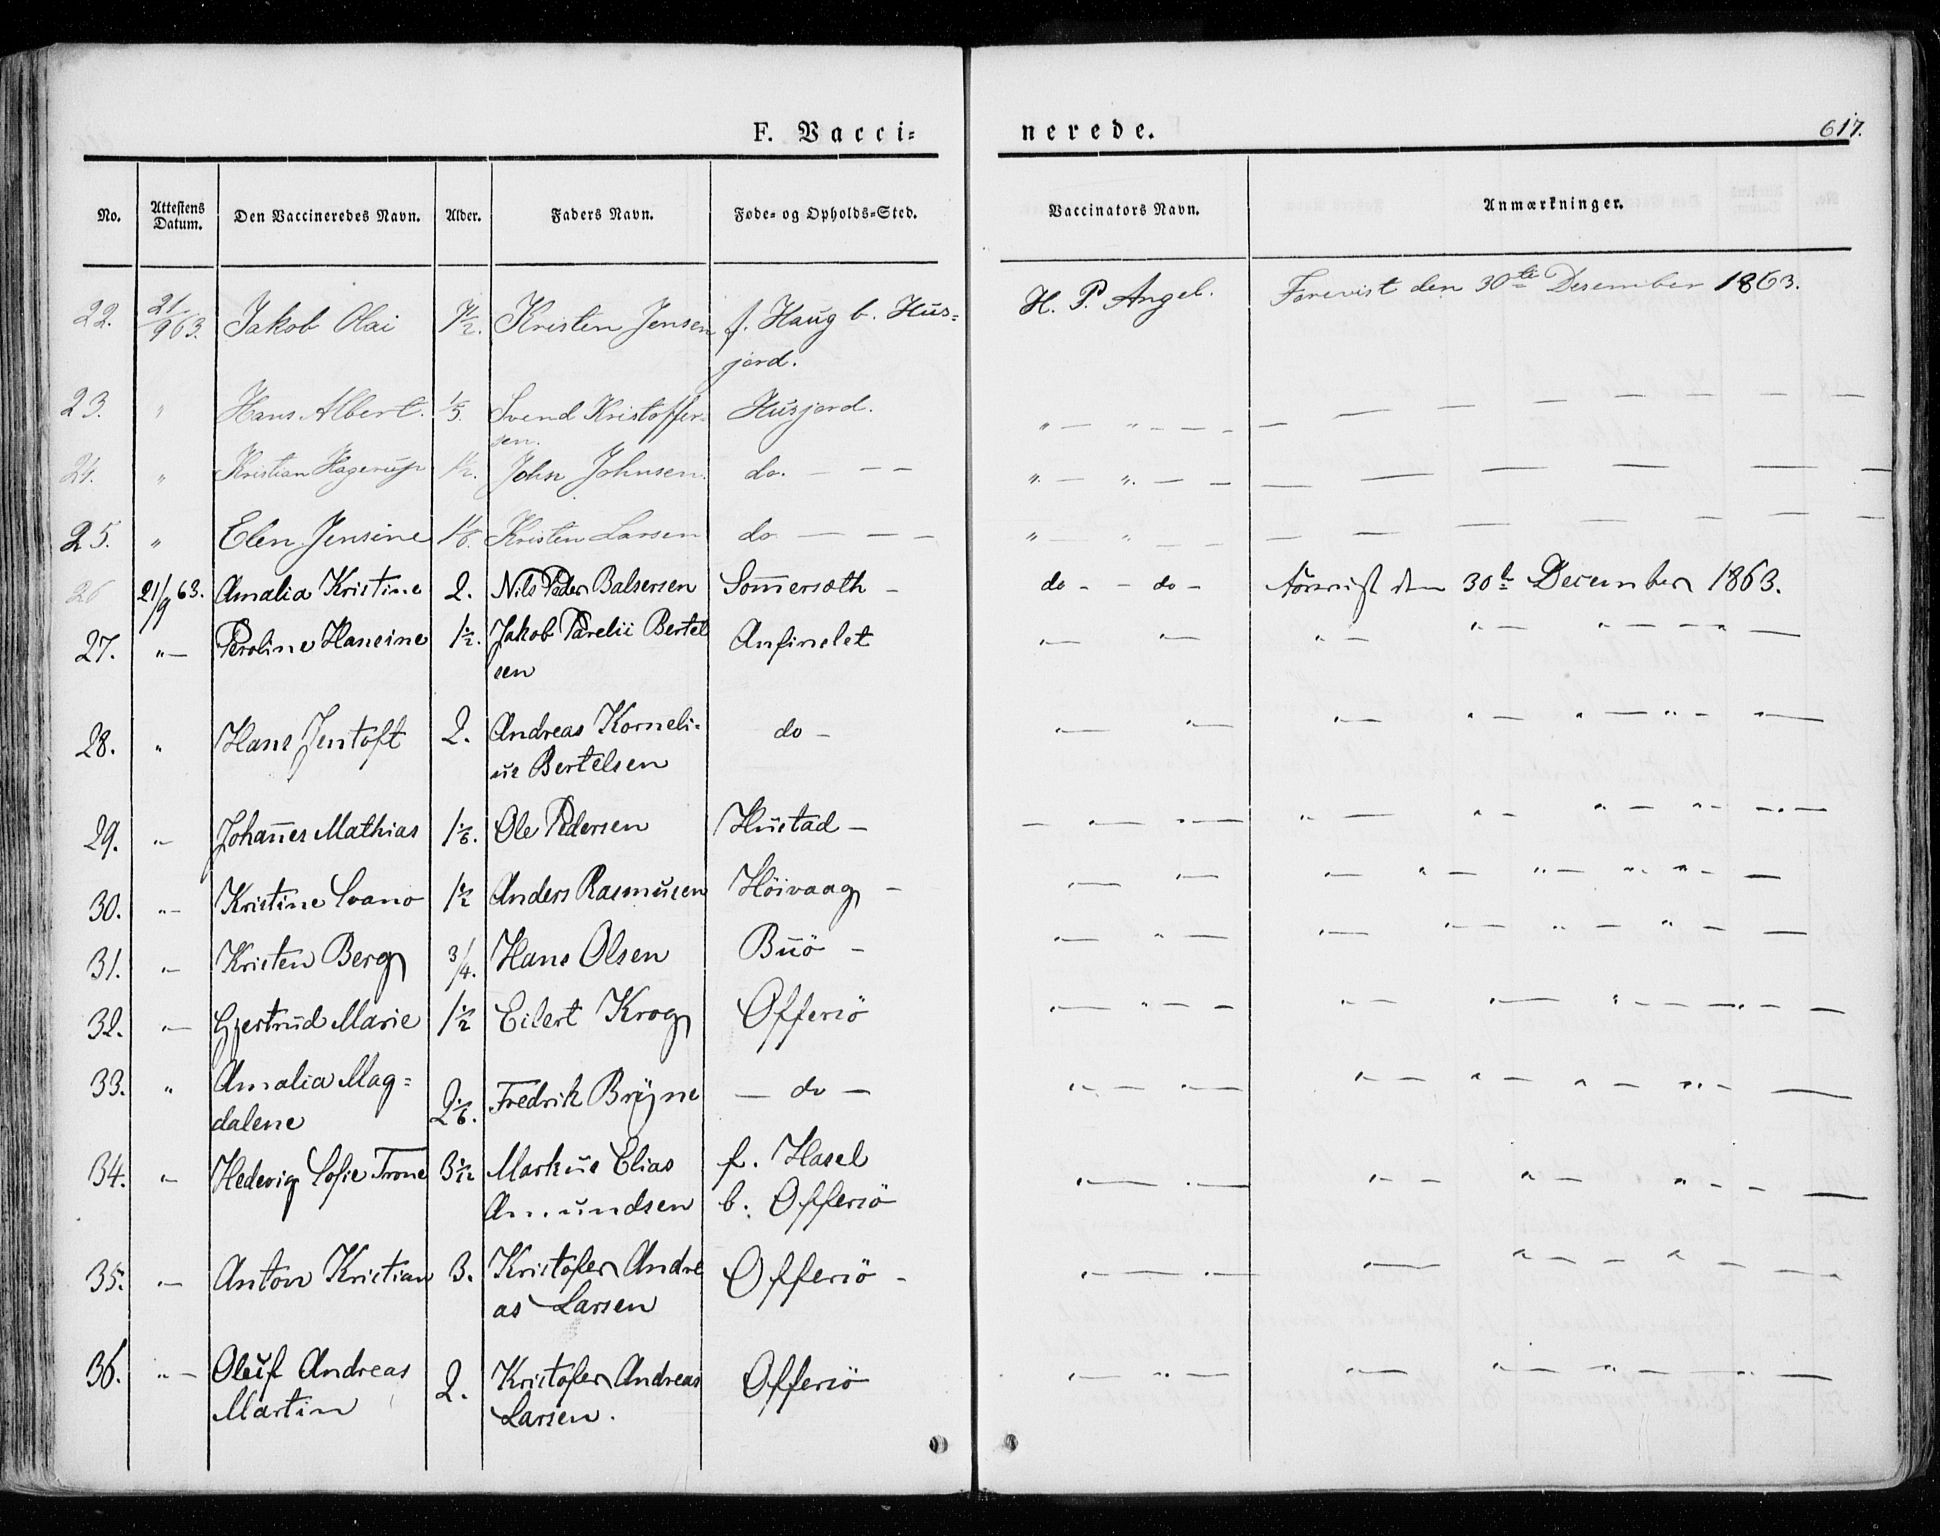 F. Vacci= nerede. 617.
No. Attestens Datum. Den Vaccineredes Navn. Alder. Faders Navn. Føde= og Opholds=Sted. Vaccinators Navn. Anmærkninger.
22. 21/9 63. Jakob Olai 1½. Kristen Jensen f. Haug b. Hus= H. P. Angel. Forevist den 30te Desember 1863.
jord.
23. " Hans Albert. Svend Kristoffer= Husjord. " — " — — — — — — — — — —
sen.
24. " Kristian Hagerup 1½. John Johnsen. do. — — — ". — ". — — — — — — — —
25. " Elen Jensine Kristen Larsen do — — — " — " — — — — — — — — —
26 21/9 63. Amalia Kristine 2. Nils Peder Balsersen Som̄ersæth — do - - do - Forevist den 30te December 1863.
27. " — Peroline Hansine 1½. Jakob Parelii Bertel Anfinslet " — " — " — " — " — — " —
sen
28. " Hans Jentoft 2. Andreas Korneli= do — " — " — " — " — " — " — " —
us Bertelsen
29. " — Johan̄es Mathias 1⅙. Ole Pedersen Hustad — — " — " — " — " — " — " — " —
30. " — Kristine Svanø 1½ Anders Rasmusen Höivaag — " — " — " — " — " — " — " —
31. " — Kristen Berg 3/4. Hans Olsen Buö — " — " — " — " — " — " — " —
32. " — Gjertrud Marie 1½ Eilert Krog Offersö " — " — — " — " — " — " — —
33. " Amalia Mag= — do — " — " — " — " — " — " — —
dalene 2⅙. Fredrik Brÿne
34. " — Hedevig Sofie Trone Markus Elias f. Hasel " — " — " — " — " — — —
Amundsen b. Offersö
35. " — Anton Kristian 3. Kristofer Andre Offersö — " — " — " — " — " — — —
as Larsen
36. " — Oluf Andreas 2. Kristofer Andreas Offersö " — " — " — " — " — " — —
Martin Larsen.